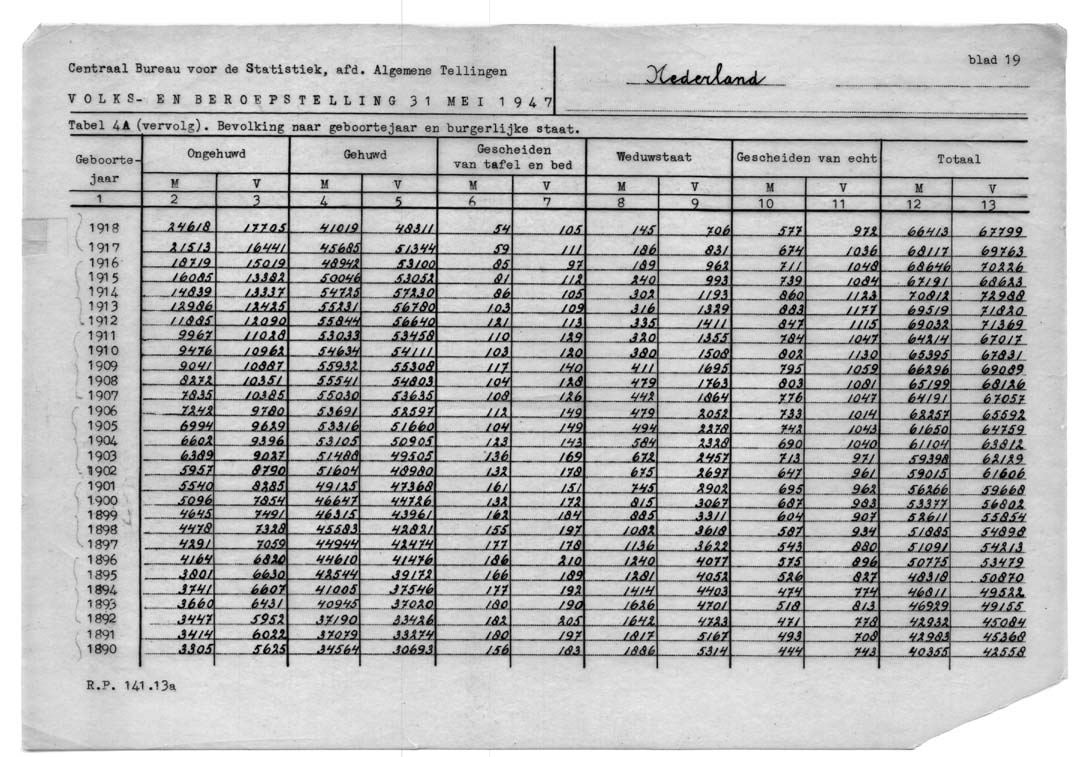 Centraal Bureau voor de Statistiek, afd. Algemene Tellingen
Nederland
blad 19
VOLKS- EN BEROEPSTELLING 31 MEI 1947
Tabel 4A (vervolg). Bevolking naar geboortejaar en burgerlijke staat.
Geboorte- jaar Ongehuwd Gehuwd Gescheiden van tafel en bed Weduwstaat Gescheiden van echt Totaal
M V M V M V M V M V M V
1 2 3 4 5 6 7 8 9 10 11 12 13
1918 24618 17705 41019 48311 54 105 145 706 577 972 66413 67799
1917 21513 16441 45685 51344 59 111 186 831 674 1036 68117 69763
1916 18719 15019 48942 53100 85 97 189 962 711 1048 68646 70226
1915 16085 13382 50046 53052 81 112 240 993 739 1084 67191 68623
1914 14839 13337 54725 57230 86 105 302 1193 860 1123 70812 72988
1913 12986 12425 55231 56780 103 109 316 1329 883 1177 69519 71820
1912 11885 12090 55844 56640 121 113 335 1411 847 1115 69032 71369
1911 9967 11028 53033 53458 110 129 320 1355 784 1047 64214 67017
1910 9476 10962 54634 54111 103 120 380 1508 802 1130 65395 67831
1909 9041 10887 55932 55308 117 140 411 1695 795 1059 66296 69089
1908 8272 10351 55541 54803 104 128 479 1763 803 1081 65199 68126
1907 7835 10385 55030 53635 108 126 442 1864 776 1047 64191 67057
1906 7242 9780 53691 52597 112 149 479 2052 733 1014 62257 65592
1905 6994 9629 53316 51660 104 149 494 2278 742 1043 61650 64759
1904 6602 9396 53105 50905 123 143 584 2328 690 1040 61104 63812
1903 6389 9027 51488 49505 136 169 672 2457 713 971 59398 62129
1902 5957 8790 51604 48980 132 178 675 2697 647 961 59015 61606
1901 5540 8285 49125 47368 161 151 745 2902 695 962 56266 59668
1900 5096 7854 46647 44726 132 172 815 3067 687 983 53377 56802
1899 4645 7491 46315 43961 162 184 885 3311 604 907 52611 55854
1898 4478 7328 45583 42821 155 197 1082 3618 587 934 51885 54898
1897 4291 7059 44944 42474 177 178 1136 3622 543 880 51091 54213
1896 4164 6820 44610 41476 186 210 1240 4077 575 896 50775 53479
1895 3801 6630 42544 39172 166 189 1281 4052 526 827 48318 50870
1894 3741 6607 41005 37546 177 192 1414 4403 474 774 46811 49522
1893 3660 6431 40945 37020 180 190 1626 4701 518 813 46929 49155
1892 3447 5952 37190 33426 182 205 1642 4723 471 778 42932 45084
1891 3414 6022 37079 33274 180 197 1817 5167 493 708 42983 45368
1890 3305 5625 34564 30693 156 183 1886 5314 444 743 40355 42558
R.P. 141.13a